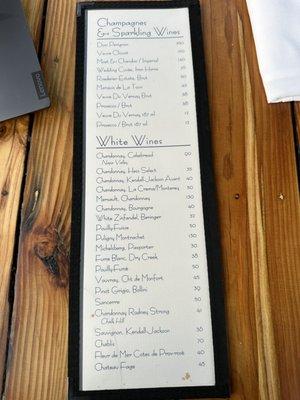 Champagnes
& Sparkling Wines
Dom Perignon
Veuve Clicquot
Moet & Chandon / Imperial
Wedding Cuvée, Iron Horse
Roederer Estate, Brut
Marquis de La Tour
Veuve Du Vernay Brut 38
Prosecco / Brut 38
Veuve Du Vernay 187 ml 13
Prosecco / Brut 187 ml 13
White Wines
Chardonnay, Cakebread 90
Napa Valley
Chardonnay, Hess Select 35
Chardonnay, Kendall-Jackson Avant 40
Chardonnay, La Crema/Monterey 50
Meursault, Chardonnay 130
Chardonnay, Bourgogne 40
White Zinfandel, Beringer 32
Pouilly-Fuisse 50
Puligny Montrachet 130
Michelsberg, Piesporter 30
Fume Blanc, Dry Creek 38
Pouilly-Fumé 50
Vouvray, Cht de Montfort 45
Pinot Grigio, Bollini 39
Sancerre 50
Chardonnay Rodney Strong 41
Chalk Hill
Sauvignon, Kendall-Jackson 35
Chablis 70
Fleur de Mer Cotes de Provence 40
Chateau Fage 45
Lenovo